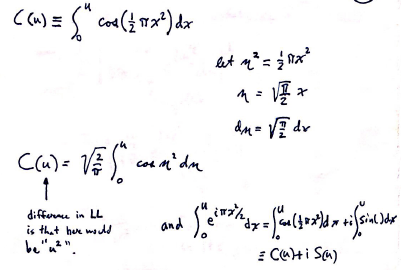 C(u) ≡ ∫₀ᵘ cos(½πx²)dx
let η² = ½πx²
η = √(π/2) x
dη = √(π/2) dx
C(u) = √(2/π) ∫₀ᵘ cos η² dη
difference in LL
is that here would
be "u²".
and ∫₀ᵘ e^(iπx²/2) dx = ∫₀ᵘ cos(½πx²)dx + i∫₀ᵘ sin( )dx
≡ C(u) + i S(u)